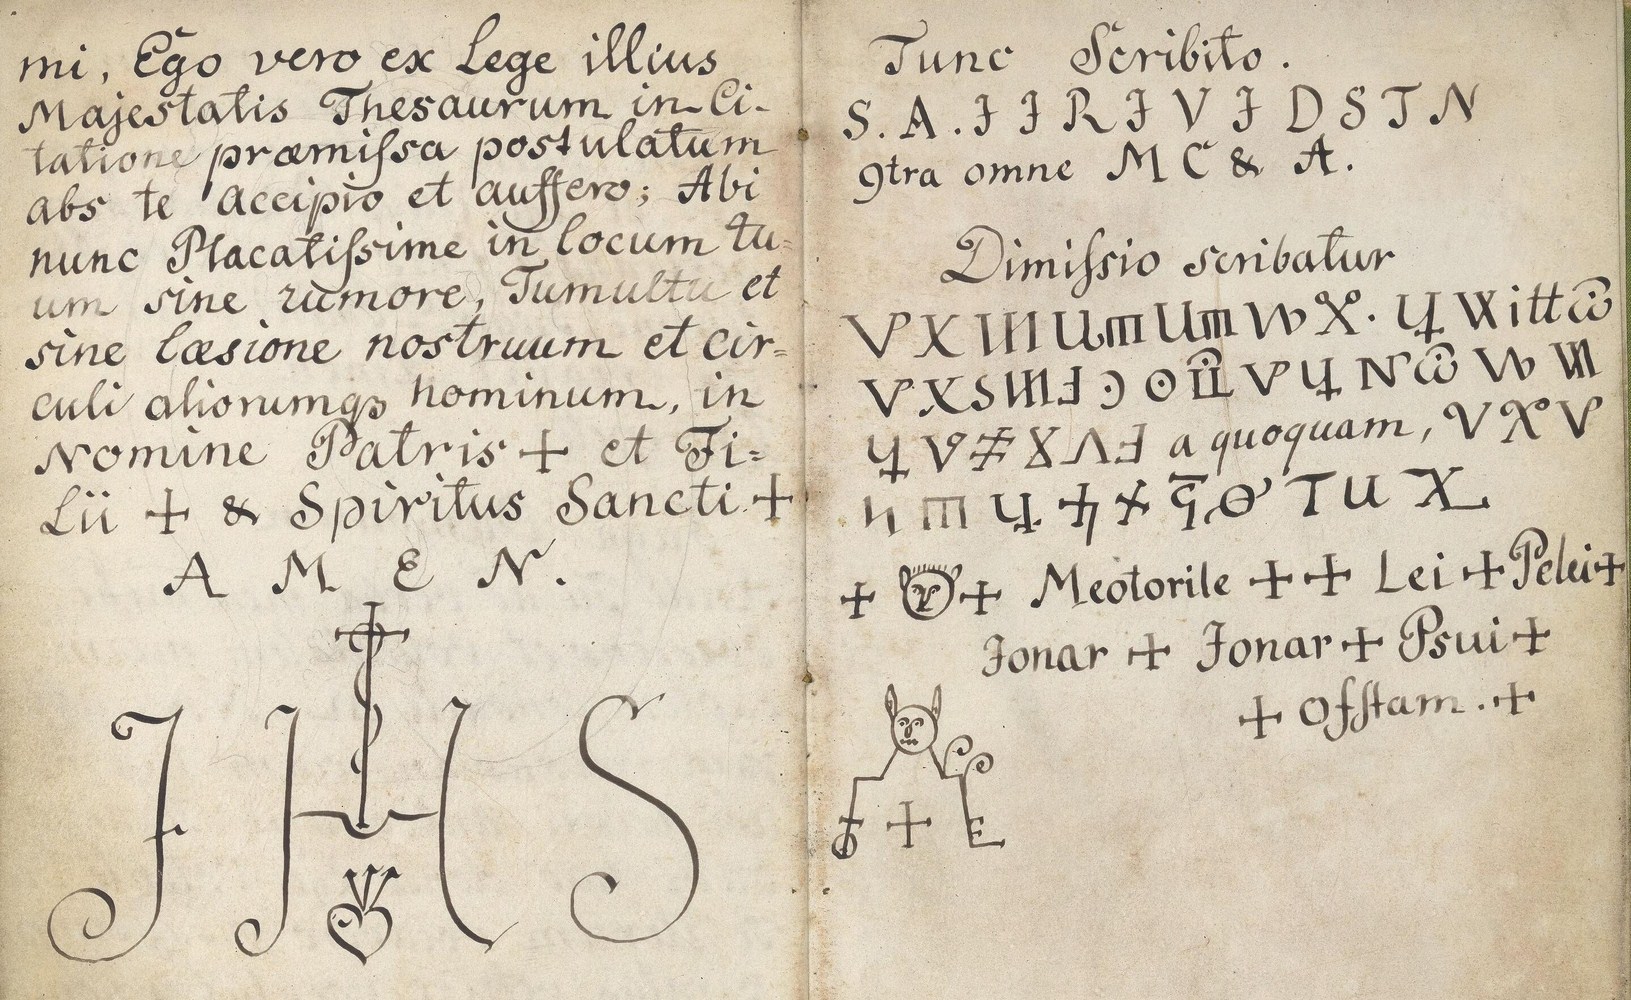 mi, Ego vero ex Lege illius
Majestatis Thesaurum in Ci-
tatione præmiſsa postulatum
abs te accipio et auffero; Abi
nunc Placatiſsime in locum tu=
um sine rumore, Tumultu et
sine læsione nostruum et cir=
culi aliorumqꝫ hominum, in
Nomine Patris + et Fi=
Lii + & Spiritus Sancti +
A M E N.
J H S
Tunc Scribito.
S. A. J J R J V J D S T N
9tra omne M C & A.
Dimiſsio scribatur
a quoquam,
+ + Meotorile + + Lei + Pelei +
Jonar + Jonar + Psui +
+ Ofſtam. +